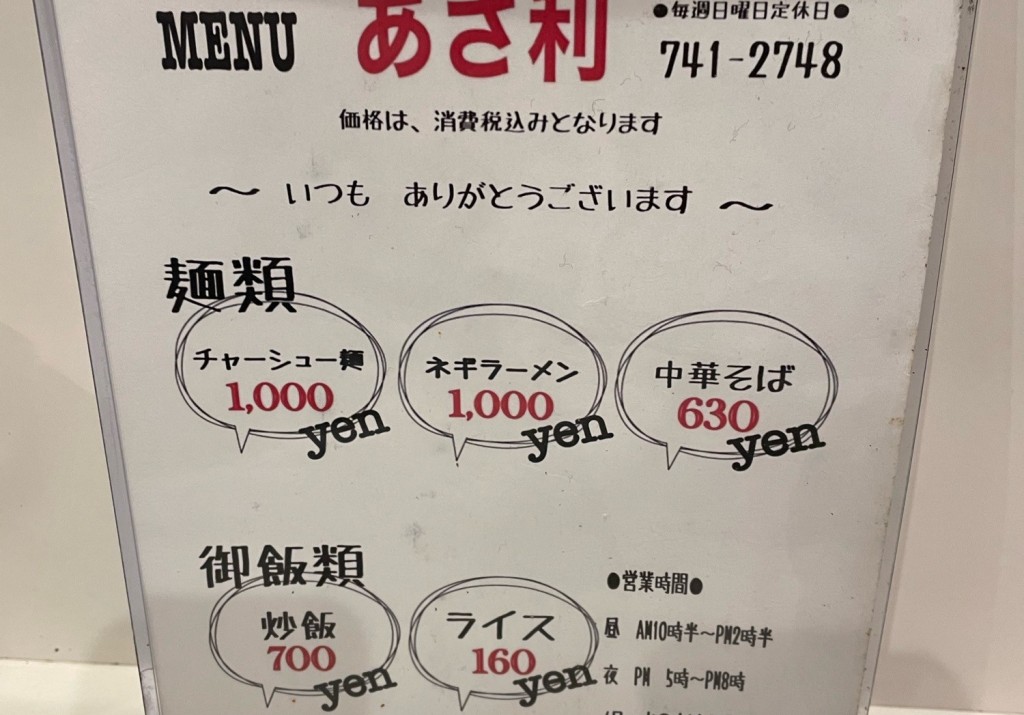 MENU
あさ利
●毎週日曜日定休日●
741-2748
価格は、消費税込みとなります
～ いつも ありがとうございます ～
麺類
チャーシュー麺
1,000
yen
ネギラーメン
1,000
yen
中華そば
630
yen
御飯類
炒飯
700
yen
ライス
160
yen
●営業時間●
昼 AM10時半～PM2時半
夜 PM 5時～PM8時